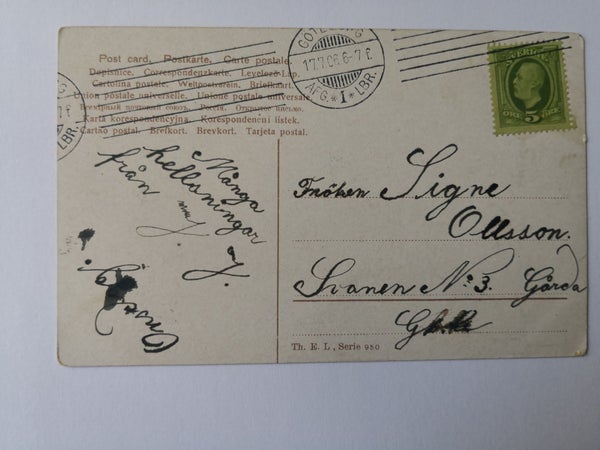 Post card, Postkarte, Carte postale
Dopisnice. Correspondenzkarte. Levelező-Lap.
Cartolina postale. Weltpostverein. Briefkaart.
Union postale universelle. Unione postale universale.
Всемірный почтовый союзъ. Россія. Открытое письмо.
Karta korespondencyjna. Korespondenční lístek.
Cartao postal. Brefkort. Brevkort. Tarjeta postal.
GÖTEBORG
17.7.06.6-7 f.
AFG. * 1 * LBR.
LBR.
SVERIGE
5
ÖRE ÖRE
Många
hellsningar
från
Fröken Signe
Ollsson.
Svanen No 3. Gårda
Th. E. L., Serie 980